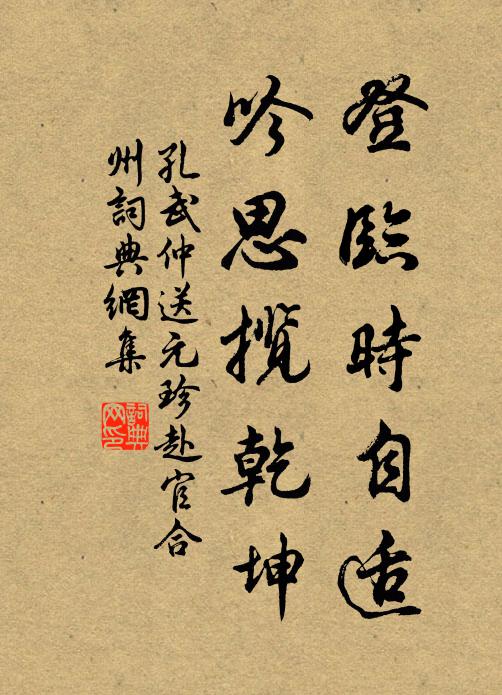 登臨時自适
吟思攬乾坤
孔武仲送元珍赴官合
州詞典網集
詞典
网印